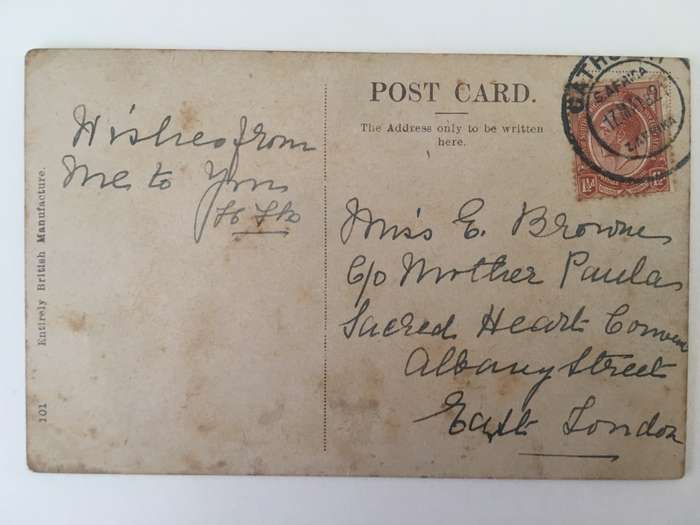 POST CARD.
The Address only to be written
here.
Wishes from
me to Yrus
S. AFRICA
Z. AFRIKA
1½d
Miss E. Browne
C/o Mother Paulas
Sacred Heart Convent
Albany Street
East London
101 Entirely British Manufacture.